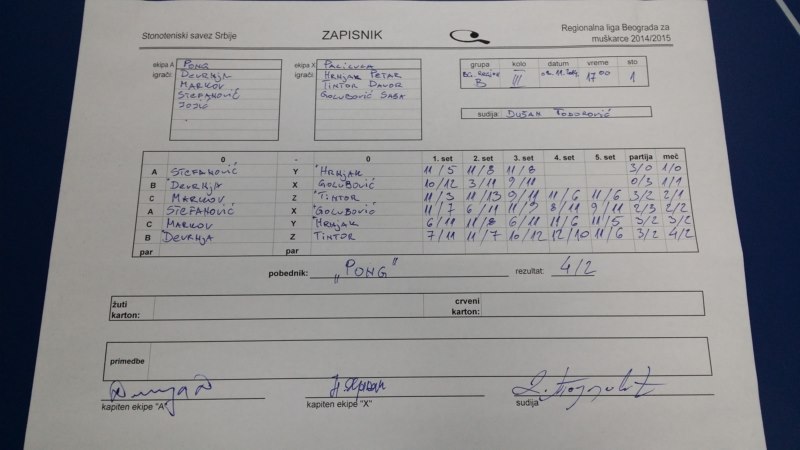 Stonoteniski savez Srbije
ZAPISNIK
Regionalna liga Beograda za
muškarce 2014/2015
ekipa A PONG
igrači: DEVRNJA
MARKOV
STEFANOVIĆ
ekipa X PALILULA
igrači: HRNJAK PETAR
TINTOR DAVOR
GOLUBOVIĆ SAŠA
grupa kolo datum vreme sto
B III 17 00 1
sudija: DUŠAN TODOROVIĆ
0 - 0 1. set 2. set 3. set 4. set 5. set partija meč
A STEFANOVIĆ Y HRNJAK 11/5 11/8 11/8 3/0 1/0
B DEVRNJA X GOLUBOVIĆ 10/12 3/11 9/11 0/3 1/1
C MARKOV Z TINTOR 11/3 11/13 9/11 11/6 11/6 3/2 2/1
A STEFANOVIĆ X GOLUBOVIĆ 11/7 6/11 11/9 8/11 9/11 2/3 2/2
C MARKOV Y HRNJAK 6/11 11/8 6/11 11/6 11/5 3/2 3/2
B DEVRNJA Z TINTOR 7/11 11/7 10/12 12/10 11/6 3/2 4/2
par par
pobednik: „PONG" rezultat: 4/2
žuti
karton:
crveni
karton:
primedbe
kapiten ekipe "A"
kapiten ekipe "X"
sudija